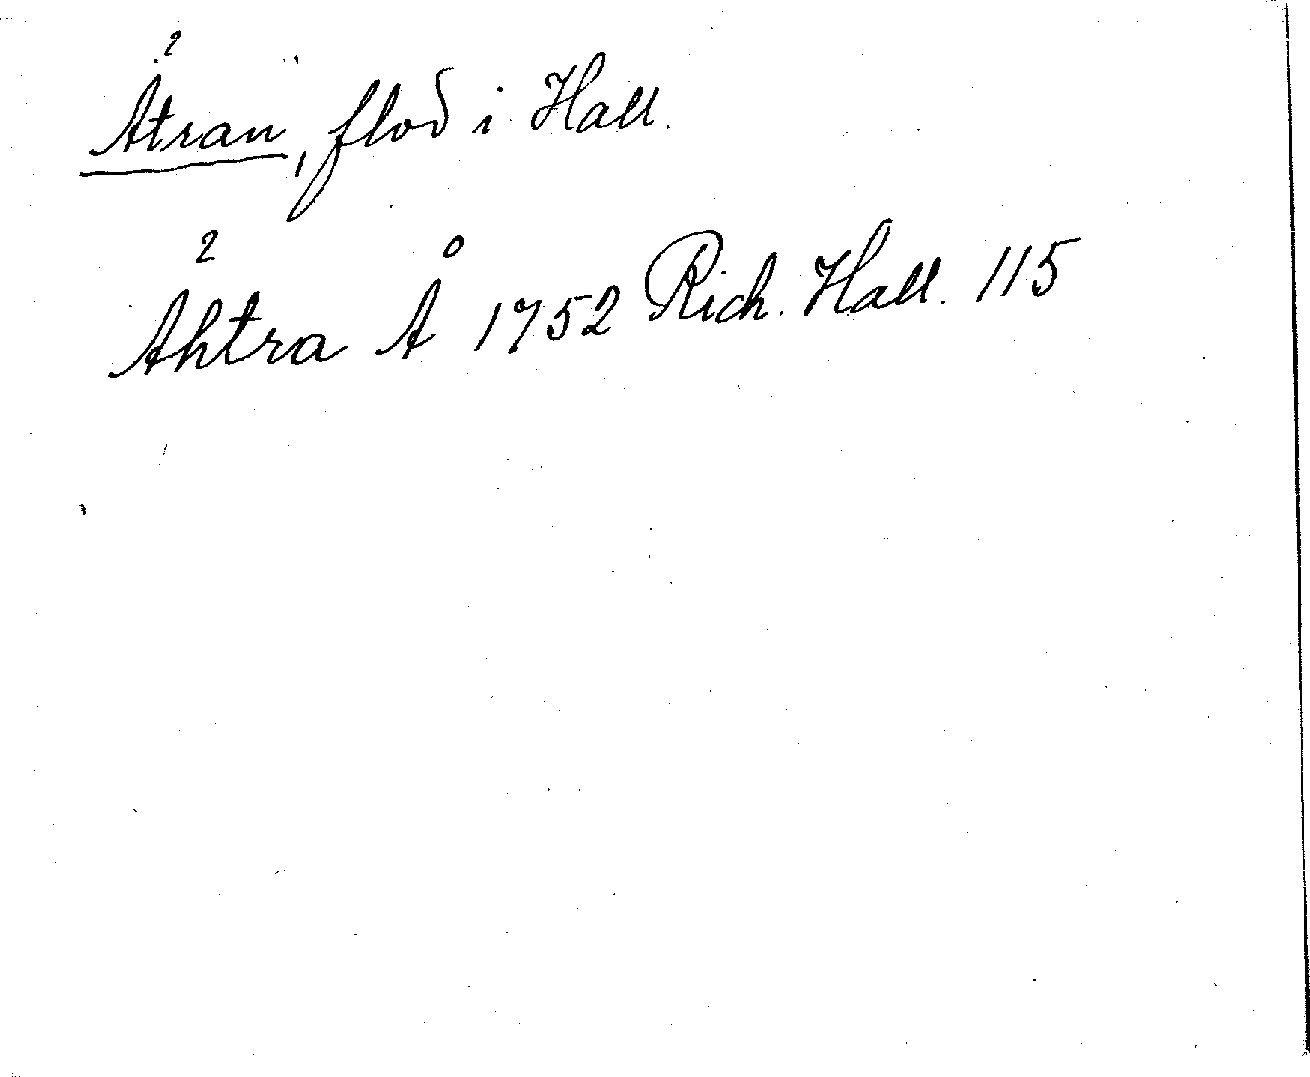 Åtran, flod i Hall.
Åhtra Å 1752 Rich. Hall. 115